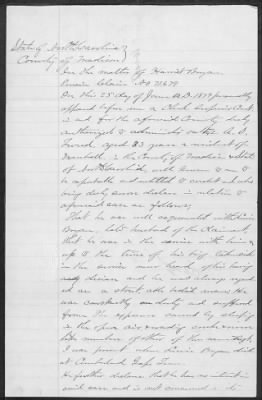 State of North Carolina
County of Madison
In the matter of Harriet Bryan
Pension Claim No 21679
On this 25 day of June A.D. 1879 personally
appeared before me a Clerk Superior Court
in and for the aforesaid County duly
authorized to administer oaths A. J.
aged 33 years a resident of
Marshall, in the County of Madison & State
of North Carolina well known to me to
be reputable and entitled to credit and who
being duly sworn declares in relation to
aforesaid case as follows;
That he was well acquainted with
Bryan, late husband of the Claimant
that he was in the service with him
up to the time of his
in the service never heard of his being
and he was always
as a stout able bodied man He
was constantly on duty and suffered
from the exposure caused by sleeping
in the open air
like numbers of others of the
I was present when Bryan died
at Cumberland Gap Tenn.
He further declares that he has no interest in
said case and is not concerned in its